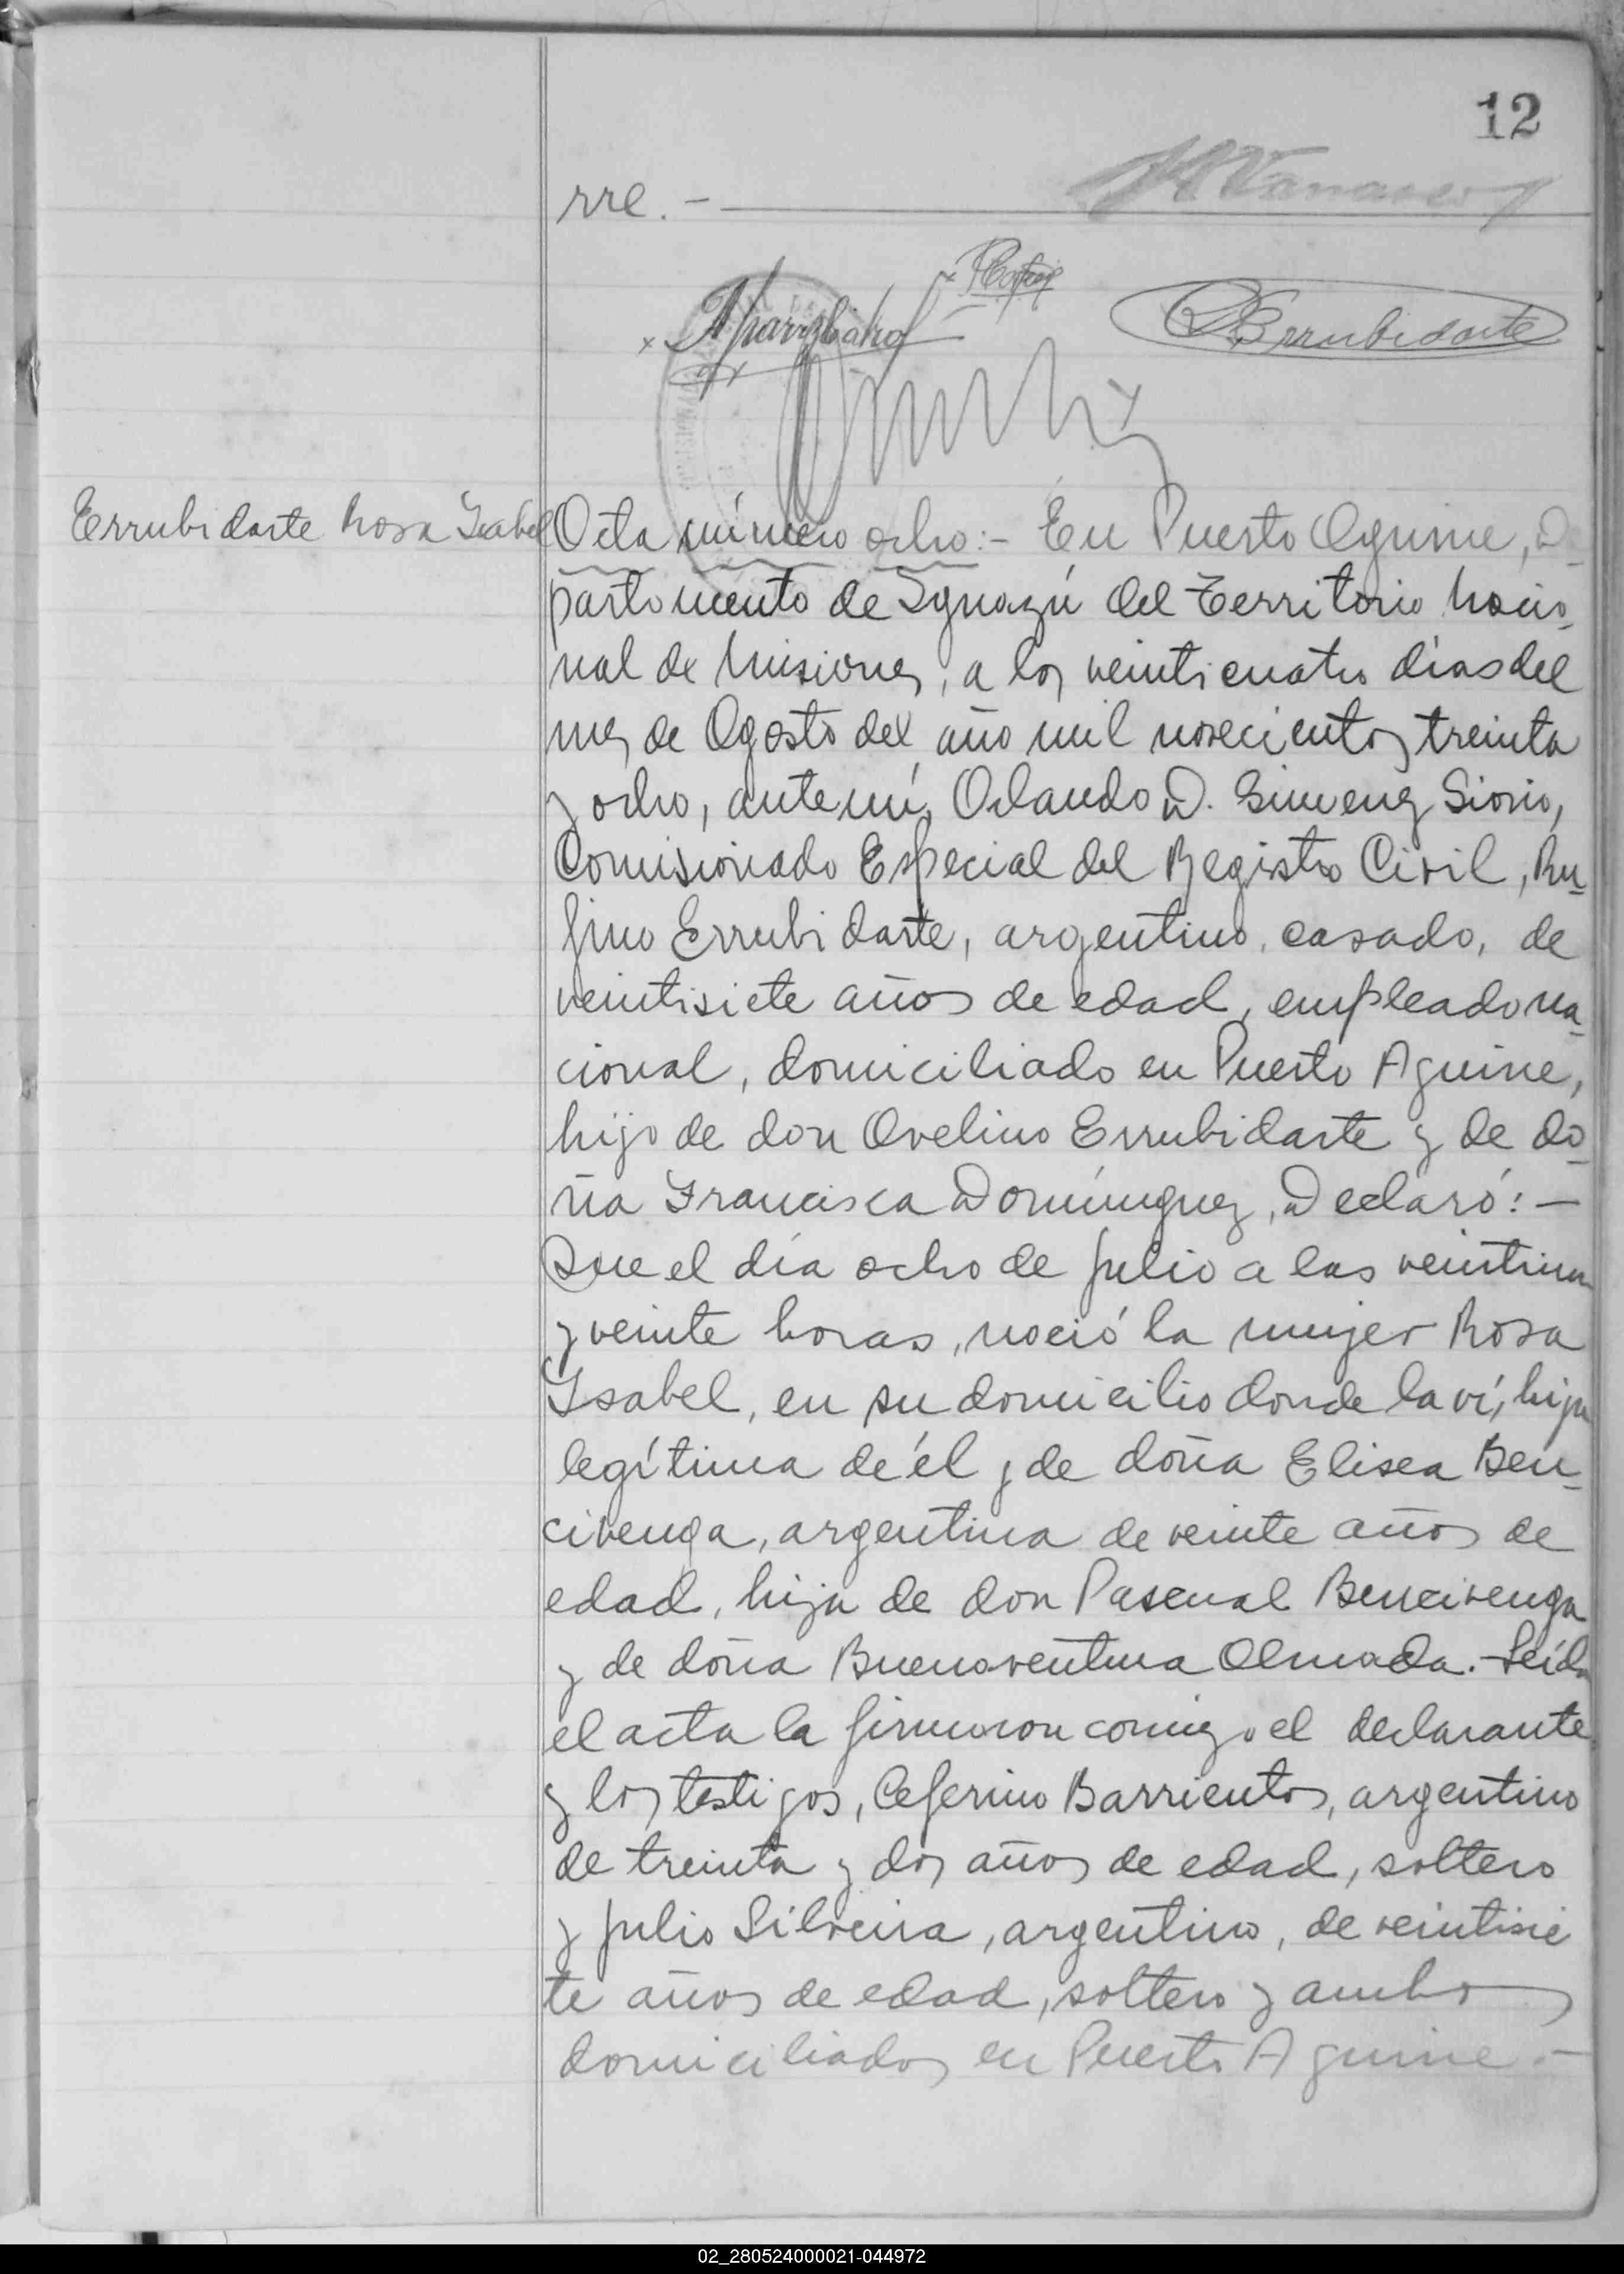 12
rre. -
Errubidarte
Errubidarte Rosa Isabel
Acta número ocho:- En Puerto Aguirre, De
partamento de Iguazú del Territorio Nacio_
nal de Misiones, a los veinticuatro días del
mes de Agosto del año mil novecientos treinta
y ocho, ante mí, Orlando D. Gimenez Siorio,
Comisionado Especial del Registro Civil, Ru_
fino Errubidarte, argentino, casado, de
veintisiete años de edad, empleado na_
cional, domiciliado en Puerto Aguirre,
hijo de don Avelino Errubidarte y de do_
ña Francisca Domínguez, Declaró: -
Que el día ocho de Julio a las veintiuna
y veinte horas, nació la mujer Rosa
Isabel, en su domicilio donde la ví, hija
legítima de él y de doña Elisea Ben_
civenga, argentina de veinte años de
edad, hija de don Pascual Bencivenga
y de doña Buenaventura Almada. - Leída
el acta la firmaron conmigo el declarante
y los testigos, Ceferino Barrientos, argentino
de treinta y dos años de edad, soltero
y Julio Silveira, argentino, de veintisie
te años de edad, soltero y ambos
domiciliados en Puerto Aguirre. -
02_280524000021-044972